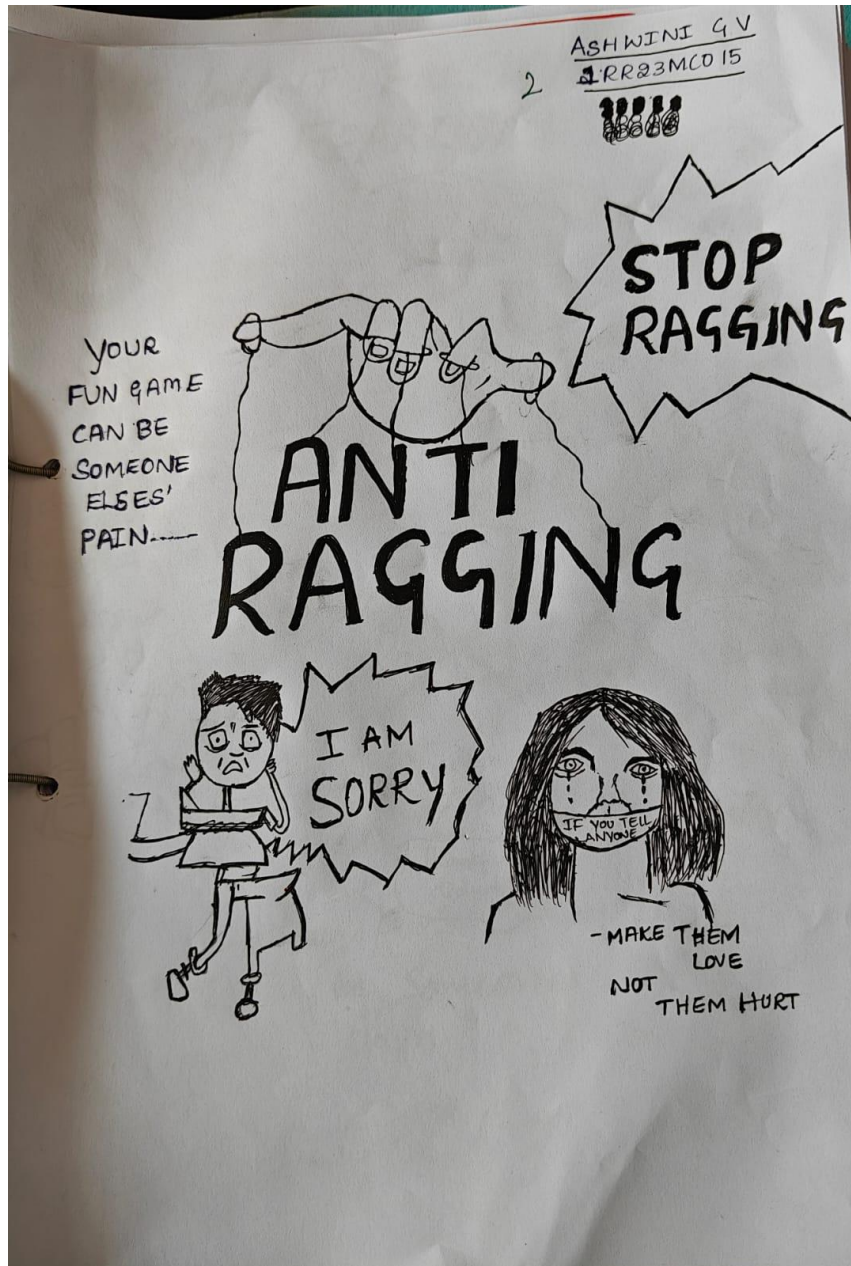 ASHWINI G V
1RR23MC015
2
STOP
RAGGING
YOUR
FUN GAME
CAN BE
SOMEONE
ELSES'
PAIN-----
ANTI
RAGGING
I AM
SORRY
IF YOU TELL
ANYONE
-MAKE THEM
LOVE
NOT
THEM HURT